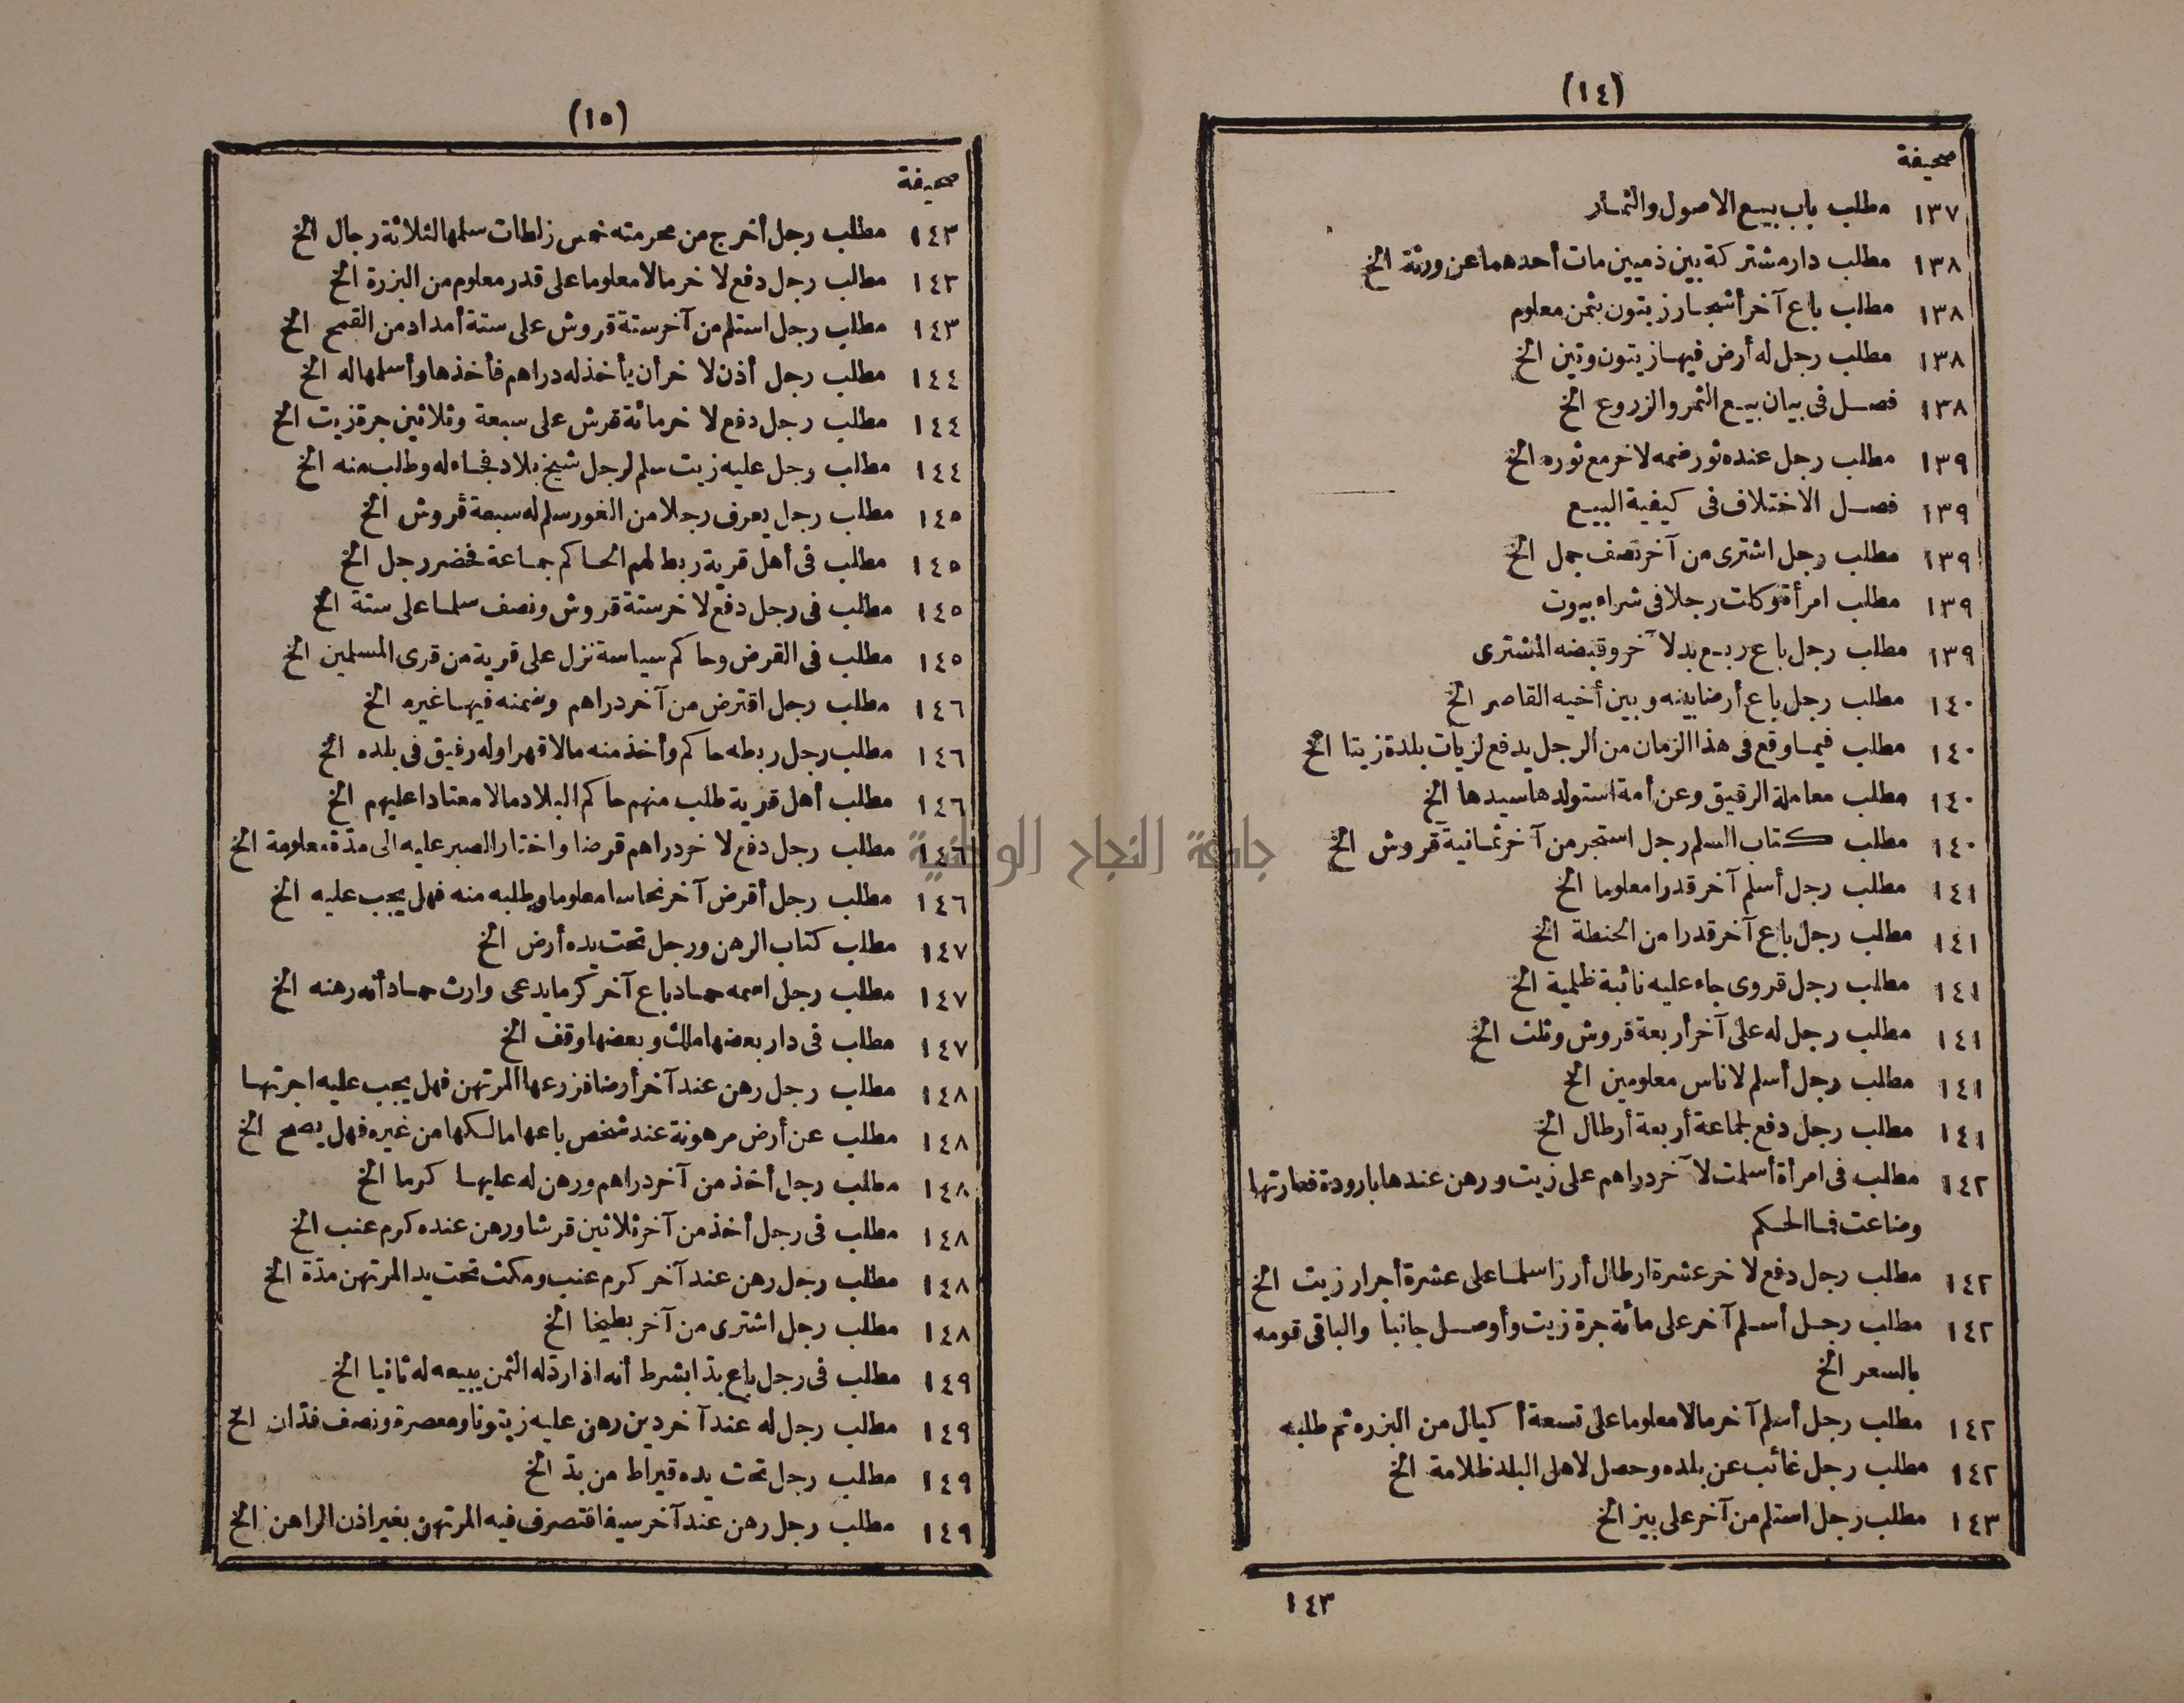 (١٤)
صحيفة
١٣٧ مطلب باب بيع الاصول والثمار
١٣٨ مطلب دار مشتركة بين ذميين مات أحدهما عن ورثة الخ
١٣٨ مطلب باع آخر أشجار زيتون بثمن معلوم
١٣٨ مطلب رجل له أرض فيها زيتون وتين الخ
١٣٨ فصل فى بيان بيع الثمر والزروع الخ
١٣٩ مطلب رجل عنده ثور ضمه لاخر مع ثوره الخ
١٣٩ فصل الاختلاف فى كيفية البيع
١٣٩ مطلب رجل اشترى من آخر نصف جمل الخ
١٣٩ مطلب امرأة وكلت رجلا فى شراء بيوت
١٣٩ مطلب رجل باع ربع بد لآخر وقبضه المشترى
١٤٠ مطلب رجل باع أرضا بينه وبين أخيه القاصر الخ
١٤٠ مطلب فيما وقع فى هذا الزمان من الرجل يدفع لزيات بلدة زيتا الخ
١٤٠ مطلب معاملة الرقيق وعن أمة استولدها سيدها الخ
١٤٠ مطلب كتاب السلم رجل استجر من آخر ثمانية قروش الخ
١٤١ مطلب رجل أسلم آخر قدرا معلوما الخ
١٤١ مطلب رجل باع آخر قدرا من الحنطة الخ
١٤١ مطلب رجل قروى جاء عليه نائبة ظلمية الخ
١٤١ مطلب رجل له على آخر أربعة قروش وثلث الخ
١٤١ مطلب رجل أسلم لاناس معلومين الخ
١٤١ مطلب رجل دفع لجماعة أربعة أرطال الخ
١٤٢ مطلب فى امرأة أسلمت لآخر دراهم على زيت ورهن عندها بارودة فعارتها
وضاعت فما الحكم
١٤٢ مطلب رجل دفع لاخر عشرة ارطال أرزا سلما على عشرة أجرار زيت الخ
١٤٢ مطلب رجل أسلم آخر على مائة جرة زيت وأوصل جانبا والباقى قومه
بالسعر الخ
١٤٢ مطلب رجل أسلم آخر مالا معلوما على تسعة أكيال من البزره ثم طلبه
١٤٢ مطلب رجل غائب عن بلده وحصل لاهل البلد ظلامة الخ
١٤٣ مطلب رجل استلم من آخر على بيز الخ
١٤٣
(١٥)
صحيفة
١٤٣ مطلب رجل أخرج من محرمته خمس زلطات سلمها لثلاثة رجال الخ
١٤٣ مطلب رجل دفع لاخر مالا معلوما على قدر معلوم من البزرة الخ
١٤٣ مطلب رجل استلم من آخر ستة قروش على ستة أمداد من القمح الخ
١٤٤ مطلب رجل أذن لاخر أن يأخذ له دراهم فأخذها وأسلمها له الخ
١٤٤ مطلب رجل دفع لاخر مائة قرش على سبعة وثلاثين جرة زيت الخ
١٤٤ مطلب رجل عليه زيت سلم لرجل شيخ بلاد فجاء له وطلب منه الخ
١٤٥ مطلب رجل يعرف رجلا من الغور سلم له سبعة قروش الخ
١٤٥ مطلب فى أهل قرية ربط لهم الحاكم جماعة فحضر رجل الخ
١٤٥ مطلب فى رجل دفع لاخر ستة قروش ونصف سلما على ستة الخ
١٤٥ مطلب فى القرض وحاكم سياسة نزل على قرية من قرى المسلمين الخ
١٤٦ مطلب رجل اقترض من آخر دراهم وضمنه فيها غيره الخ
١٤٦ مطلب رجل ربطه حاكم وأخذ منه مالا قهرا وله رفيق فى بلده الخ
١٤٦ مطلب أهل قرية طلب منهم حاكم البلاد مالا معتادا عليهم الخ
١٤٦ مطلب رجل دفع لاخر دراهم قرضا واختار الصبر عليه الى مدّة معلومة الخ
١٤٦ مطلب رجل أقرض آخر نحاسا معلوما وطلبه منه فهل يجب عليه الخ
١٤٧ مطلب كتاب الرهن ورجل تحت يده أرض الخ
١٤٧ مطلب رجل اسمه حماد باع آخر كرما يدعى وارث حماد أنه رهنه الخ
١٤٧ مطلب فى دار بعضها ملك وبعضها وقف الخ
١٤٨ مطلب رجل رهن عند آخر أرضا فزرعها المرتهن فهل يجب عليه اجرتها
١٤٨ مطلب عن أرض مرهونة عند شخص باعها مالكها من غيره فهل يصح الخ
١٤٨ مطلب رجل أخذ من آخر دراهم ورهن له عليها كرما الخ
١٤٨ مطلب فى رجل أخذ من آخر ثلاثين قرشا ورهن عنده كرم عنب الخ
١٤٨ مطلب رجل رهن عند آخر كرم عنب ومكث تحت يد المرتهن مدّة الخ
١٤٨ مطلب رجل اشترى من آخر بطيخا الخ
١٤٩ مطلب فى رجل باع بدا بشرط أنه اذا ردّ له الثمن يبيعه له ثانيا الخ
١٤٩ مطلب رجل له عند آخر دين رهن عليه زيتونا ومعصرة ونصف فدّان الخ
١٤٩ مطلب رجل تحت يده قيراط من بدّ الخ
١٤٩ مطلب رجل رهن عند آخر سيفا فتصرف فيه المرتهن بغير اذن الراهن الخ
جامعة النجاح الوطنية